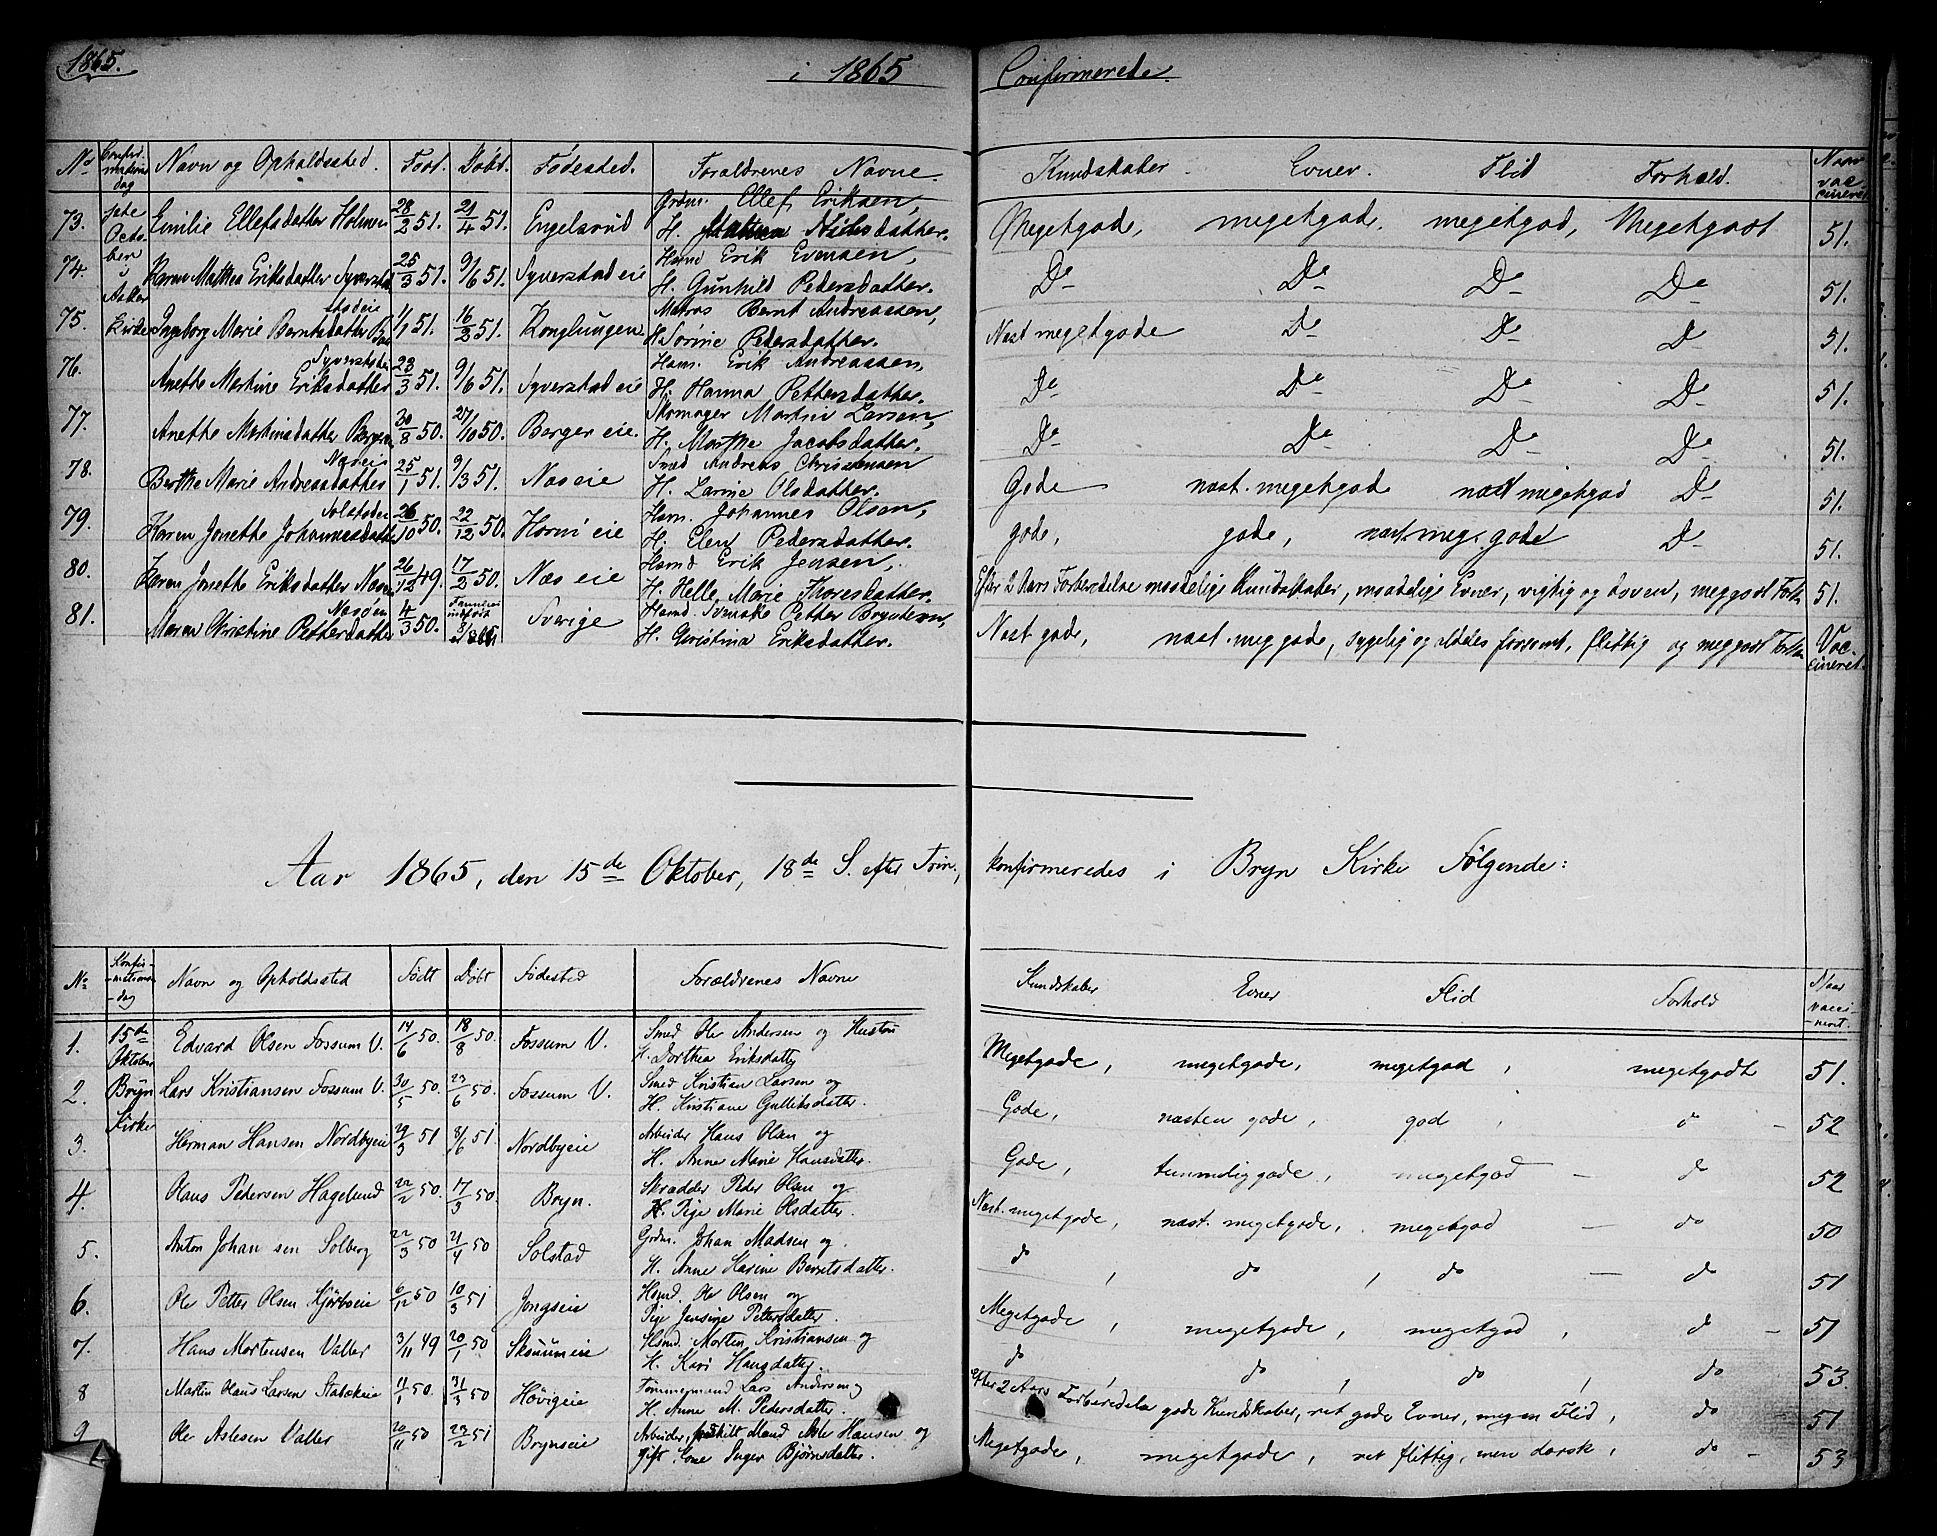 1865.
i 1865 Confirmerede.
No Confirmations dag Navn og Opholdssted. Født. Døbt. Fødested. Forældrenes Navne. Kundskaber. Evner. Flid Forhold. Naar vaccineret
73. Emilie Ellefsdatter Holmen 28/2 51. 21/4 51. Engelsrud Grdm. Ellef Eriksen, Megetgode, megetgode. megetgod, Megetgodt 51.
Octo- H. Nilsdatter.
ber
74. i Karen Mathea Eriksdatter Syverstad 25/3 51. 9/6 51. Syverstadeie Hsmd Erik Evensen, Do Do Do Do 51.
Asker H. Gunhild Pedersdatter.
75. Kirke Ingeborg Marie Berntsdatter 1/1 51. 16/2 51. Konglungen Matros Bernt Andreassen, Næst megetgode Do Do Do 51.
H. Sørine Pedersdatter.
76. Anette Martine Eriksdatter Syverstadeie 23/3 51. 9/6 51. Syverstadeie Hsm. Erik Andreassen, Do Do Do Do 51.
H. Hanna Pettersdatter.
77. Anette Martinsdatter Berger 30/8 50. 27/10 50. Berger eie. Skomager Martin Larsen, Do Do Do Do 51.
H. Marthe Jacobsdatter.
78. Berthe Marie Andreasdatter Næseie 25/1 51. 9/3 51. Næs eie Smed Andreas Christensen Gode næst. megetgode næst megetgod Do 51.
H. Larine Olsdatter.
79. Karen Jonette Johannesdatter Solstadeie 26/10 50. 22/12 50. Horni eie Hsm. Johannes Olsen, gode, gode, næst meg. gode Do 51.
H. Elen Pedersdatter.
80. Karen Josette Eriksdatter Næse 26/12 49. 17/2 50. Næs eie Hsmd Erik Jensen, Efter 2 Aars Forberedelse maadelige Kundskaber, maadelige Evner, vigtig og doven, meggodt Forh. 51.
H. Helle Marie Thoresdatter.
81. Maren Christine Pettersdatter Næsden 4/3 50. Sverige Hsmd Svenske Petter Bryntesen, Næst gode, næst. meg gode, sygelig og saaledes forsømt, flittig og meggodt Forh. Vaccineret.
H. Christina Eriksdatter.
Aar 1865, den 15de Oktober, 18de S. efter Trin., konfirmeredes i Bryn Kirke Følgende:
No Konfirmations-dag Navn og Opholdssted Født Døbt Fødested Forældrenes Navne Kundskaber Evner Flid Forhold Naar vaccineret.
1. 15de Edvard Olsen Fossum V. 14/6 50. 18/8 50. Fossum V. Smed Ole Andersen og Hustru Megetgode, megetgode, megetgod, megetgodt 51.
Oktober H. Dorthea Eriksdatter
2. Bryn Lars Kristiansen Fossum V. 30/5 50. 23/6 50. Fossum V. Smed Kristian Larsen og Gode, næsten gode, god, do 52
Kirke H. Kristiane Gulliksdatter.
3. Herman Hansen Nordbyeie 29/3 51 8/6 51 Nordbyeie Arbeider Hans Olsen og Gode, temmeliggode, megetgod - do 52
H. Anne Marie Hansdatter.
4. Klaus Pedersen Hagelund 22/2 50. 17/3 50. Bryn. Skrædder Peder Olsen og Næst. megetgode, næst. megetgode, megetgod - do 50
H. Pige Marie Olsdatter.
5. Anton Johansen Solberg 22/3 50 21/4 50 Solstad Grdm. Johan Madsen og do, do, do - do 51
H. Anne Karine Berntsdatter.
6. Ole Petter Olsen Kjørboeie 6/12 50 10/3 51 Jongseie Hsmd. Ole Olsen og Megetgode, megetgode, megetgod, do - 51
Pige Jensine Pettersdatter.
7. Hans Mortensen Valler 3/11 49 20/1 50 Skuumeie Hsmd. Morten Kristiansen og do, do, do, do 53.
H. Kari Hansdatter.
8 Martin Klaus Larsen Stabækeie 11/1 50. 31/3 50 Høvigeie Tømmermand Lars Andersen og Efter 2 Aars Forberedelse gode Kundskaber, ret gode Evner, megen Flid, do 51
H. Anne M. Pedersdatter.
9 Ole Aslesen Valler 20/11 50 23/2 51 Brynseie Arbeider, fraskilt Mand Asle Hansen og Megetgode, megetgode, ret flittig, men dorsk, do - 53
gift Kone Inger Bjørnsdatter.